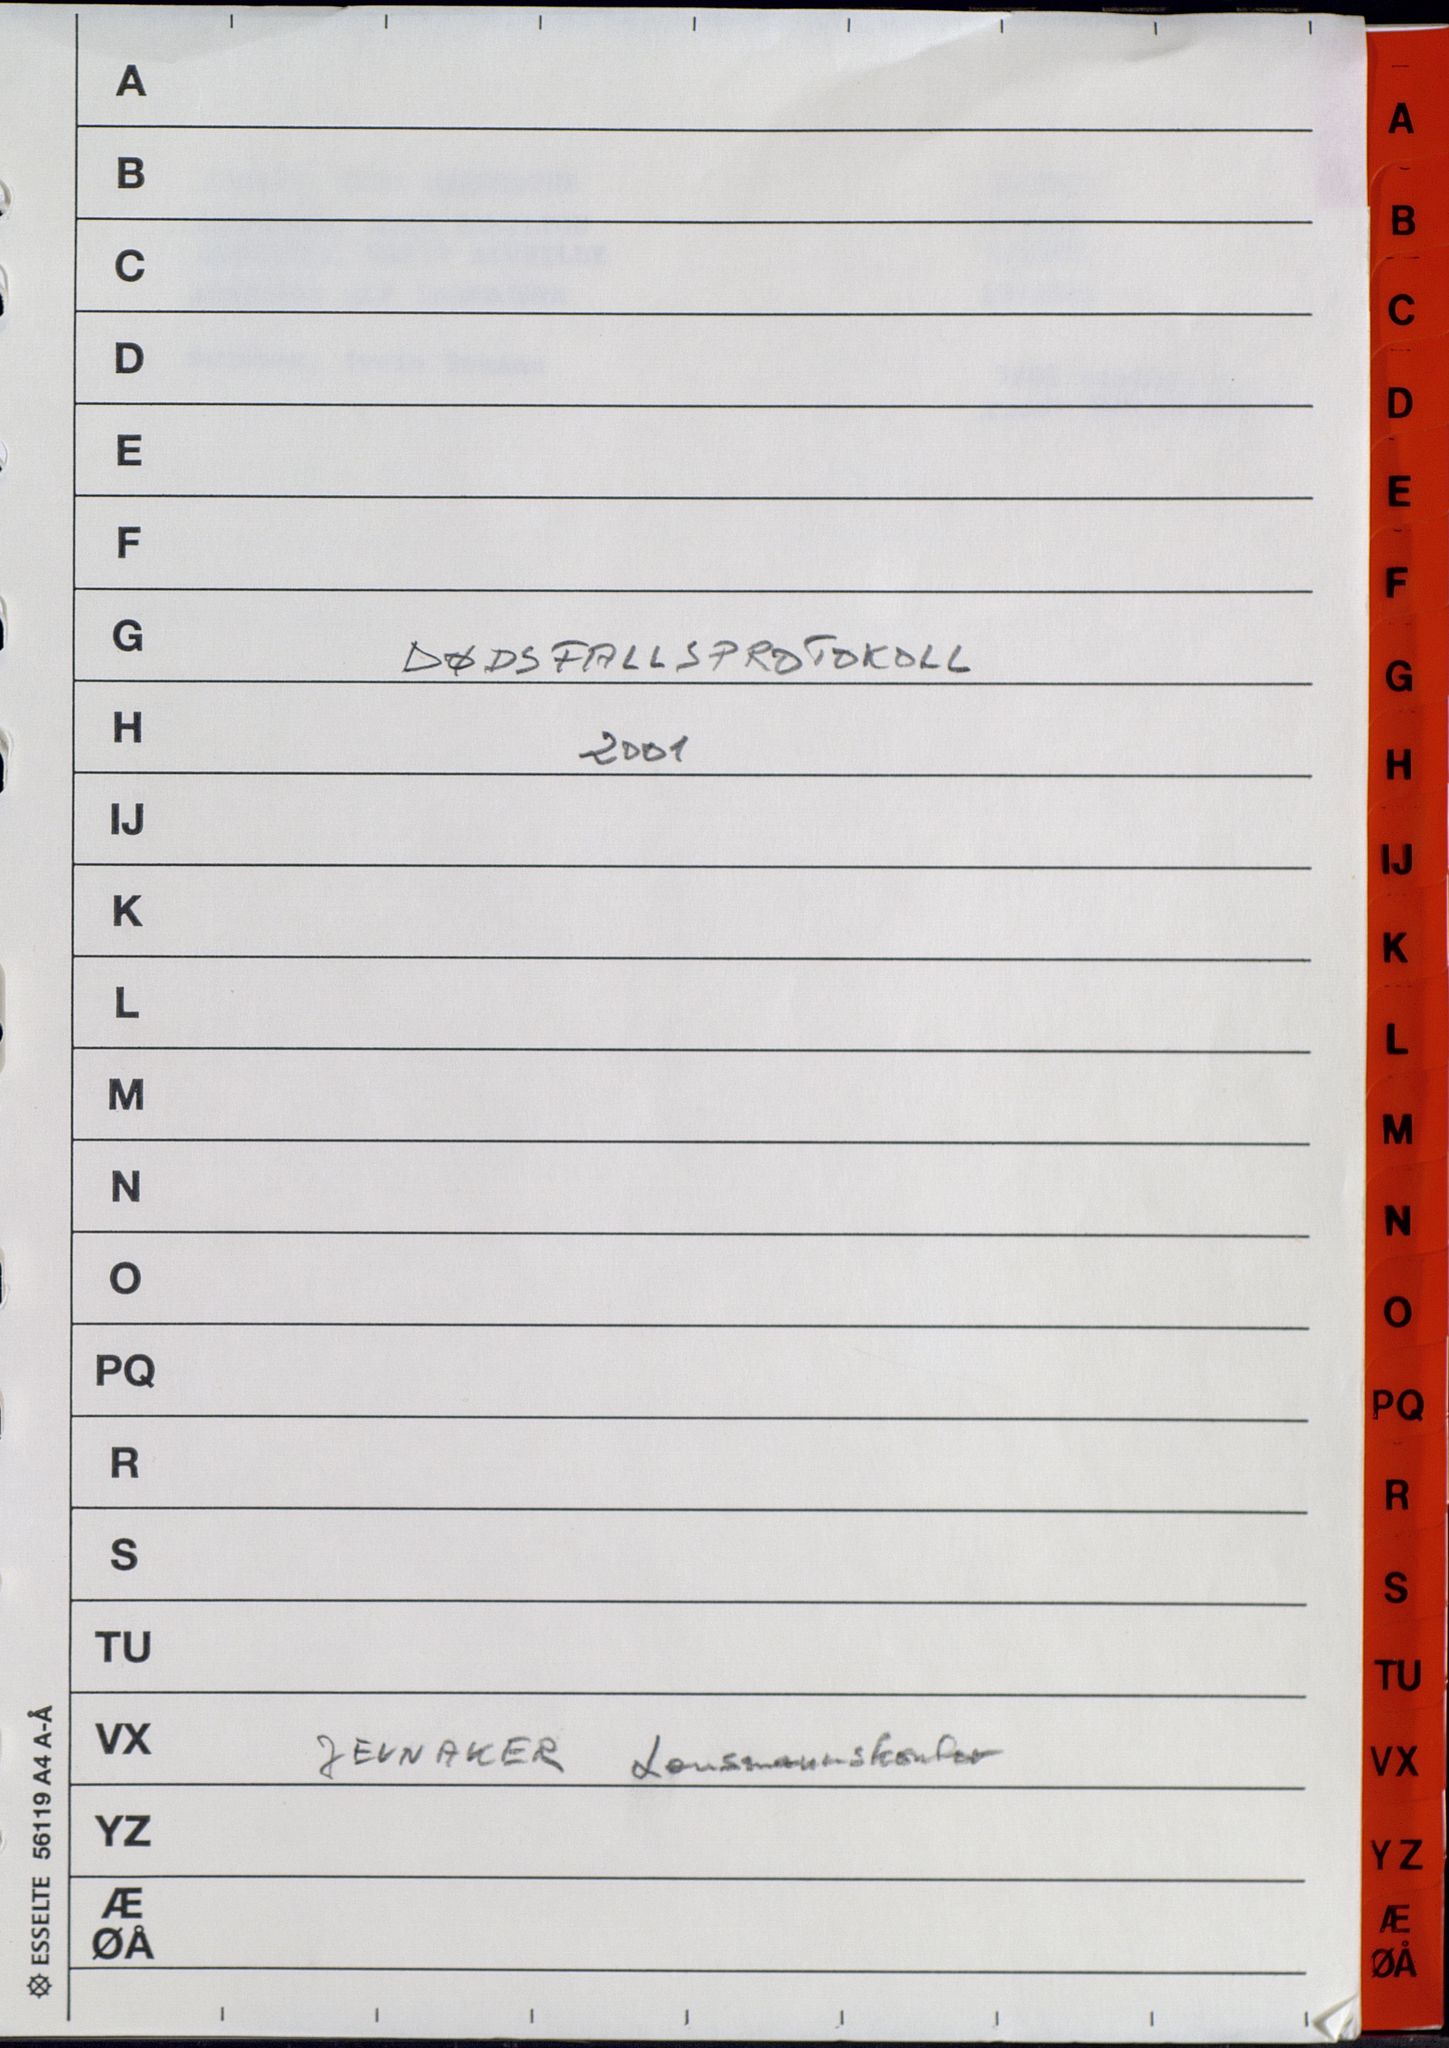 A
B
C
D
E
F
G DØDSFALLSPROTOKOLL
H 2001
IJ
K
L
M
N
O
PQ
R
S
TU
VX JEVNAKER Lensmannskontor
YZ
Æ
ØÅ
ESSELTE 56119 A4 A-Å
A
B
C
D
E
F
G
H
IJ
K
L
M
N
O
PQ
R
S
TU
VX
YZ
Æ
ØÅ